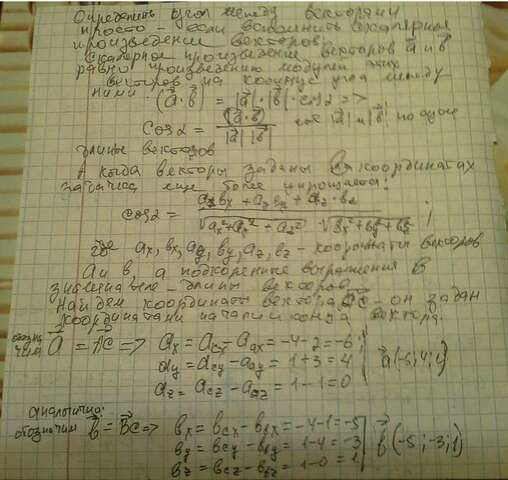 Определить угол между векторами
просто - если вспомнить скалярное
произведение векторов:
Скалярное произведение векторов a и b
равно произведению модулей этих
векторов на косинус угла между
ними. (a⃗·b⃗) = |a⃗|·|b⃗|·cos α =>
cos α = (a⃗·b⃗) / |a⃗| |b⃗| где |a⃗| и |b⃗|
длины векторов
А когда векторы заданы в координатах
задача ещё более упрощается:
cos α = (axbx + ay by + az·bz) / (√(ax²+ay²+az²) · √(bx²+by²+bz²)) ;
где ax, bx, ay, by, az, bz - координаты векторов
a и b, а подкоренные выражения в
знаменателе - длины векторов.
Найдем координаты вектора AC - он задан
координатами начала и конца вектора.
обозначим a⃗ = AC => ax = acx - aax = -4-2 = -6; a⃗(-6; 4; 0)
ay = acy - aay = 1+3 = 4
az = acz - aaz = 1-1=0
аналогично:
обозначим b⃗ = BC => bx = bcx - bbx = -4-1 = -5 b⃗(-5; -3; 1)
by = bcy - bby = 1-4 = -3
bz = bcz - bbz = 1-0 = 1